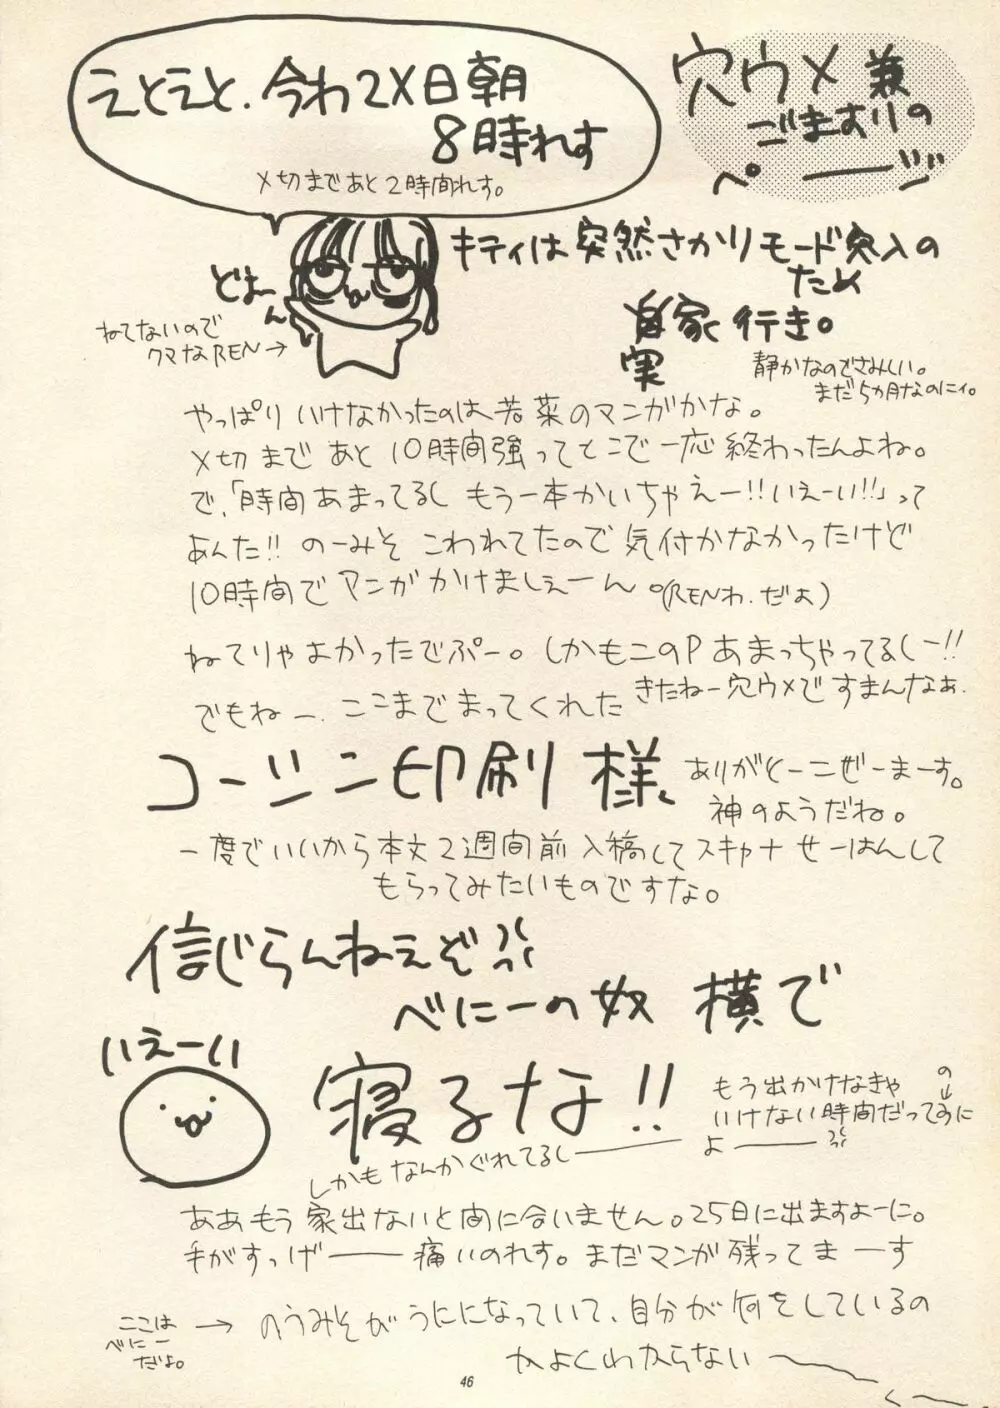 えとえと、今わ2X日朝
8時れす
〆切まであと2時間れす。
穴ウメ兼
ごますりの
ペーージ
どよーん
ねてないので
クマなREN→
キティは突然さかりモード突入の
ため
実家行き。
静かなのでさみしい。
まだ5か月なのにィ。
やっぱりいけなかったのは若菜のマンガかな。
〆切まであと10時間強ってとこで一応終わったんよね。
で、「時間あまってるしもう一本かいちゃえー!!いえーい!!」って
あんた!!のーみそこわれてたので気付かなかったけど
10時間でマンガかけましぇーん。(RENわ、だよ)
ねてりゃよかったでぷー。しかもこのPあまっちゃってるしー!!
きたねー穴ウメですまんなぁ。
でもねー、ここまでまってくれた
コーシン印刷様、
ありがとーこぜーまーす。
神のようだね。
一度でいいから本文2週間前入稿してスキャナせーはんして
もらってみたいものですな。
信じらんねえぞ
べにーの奴横で
いえーい
寝るな!!
もう出かけなきゃ
いけない時間だってのに
よーー
しかもなんかぐれてるしーー
ああもう家出ないと間に合いません。25日に出ますよーに。
手がすっげーー痛いのれす。まだマンが残ってまーす
ここは
べにー
だよ。
→のうみそがうにになっていて、自分が何をしているの
かよくわからない〜
46